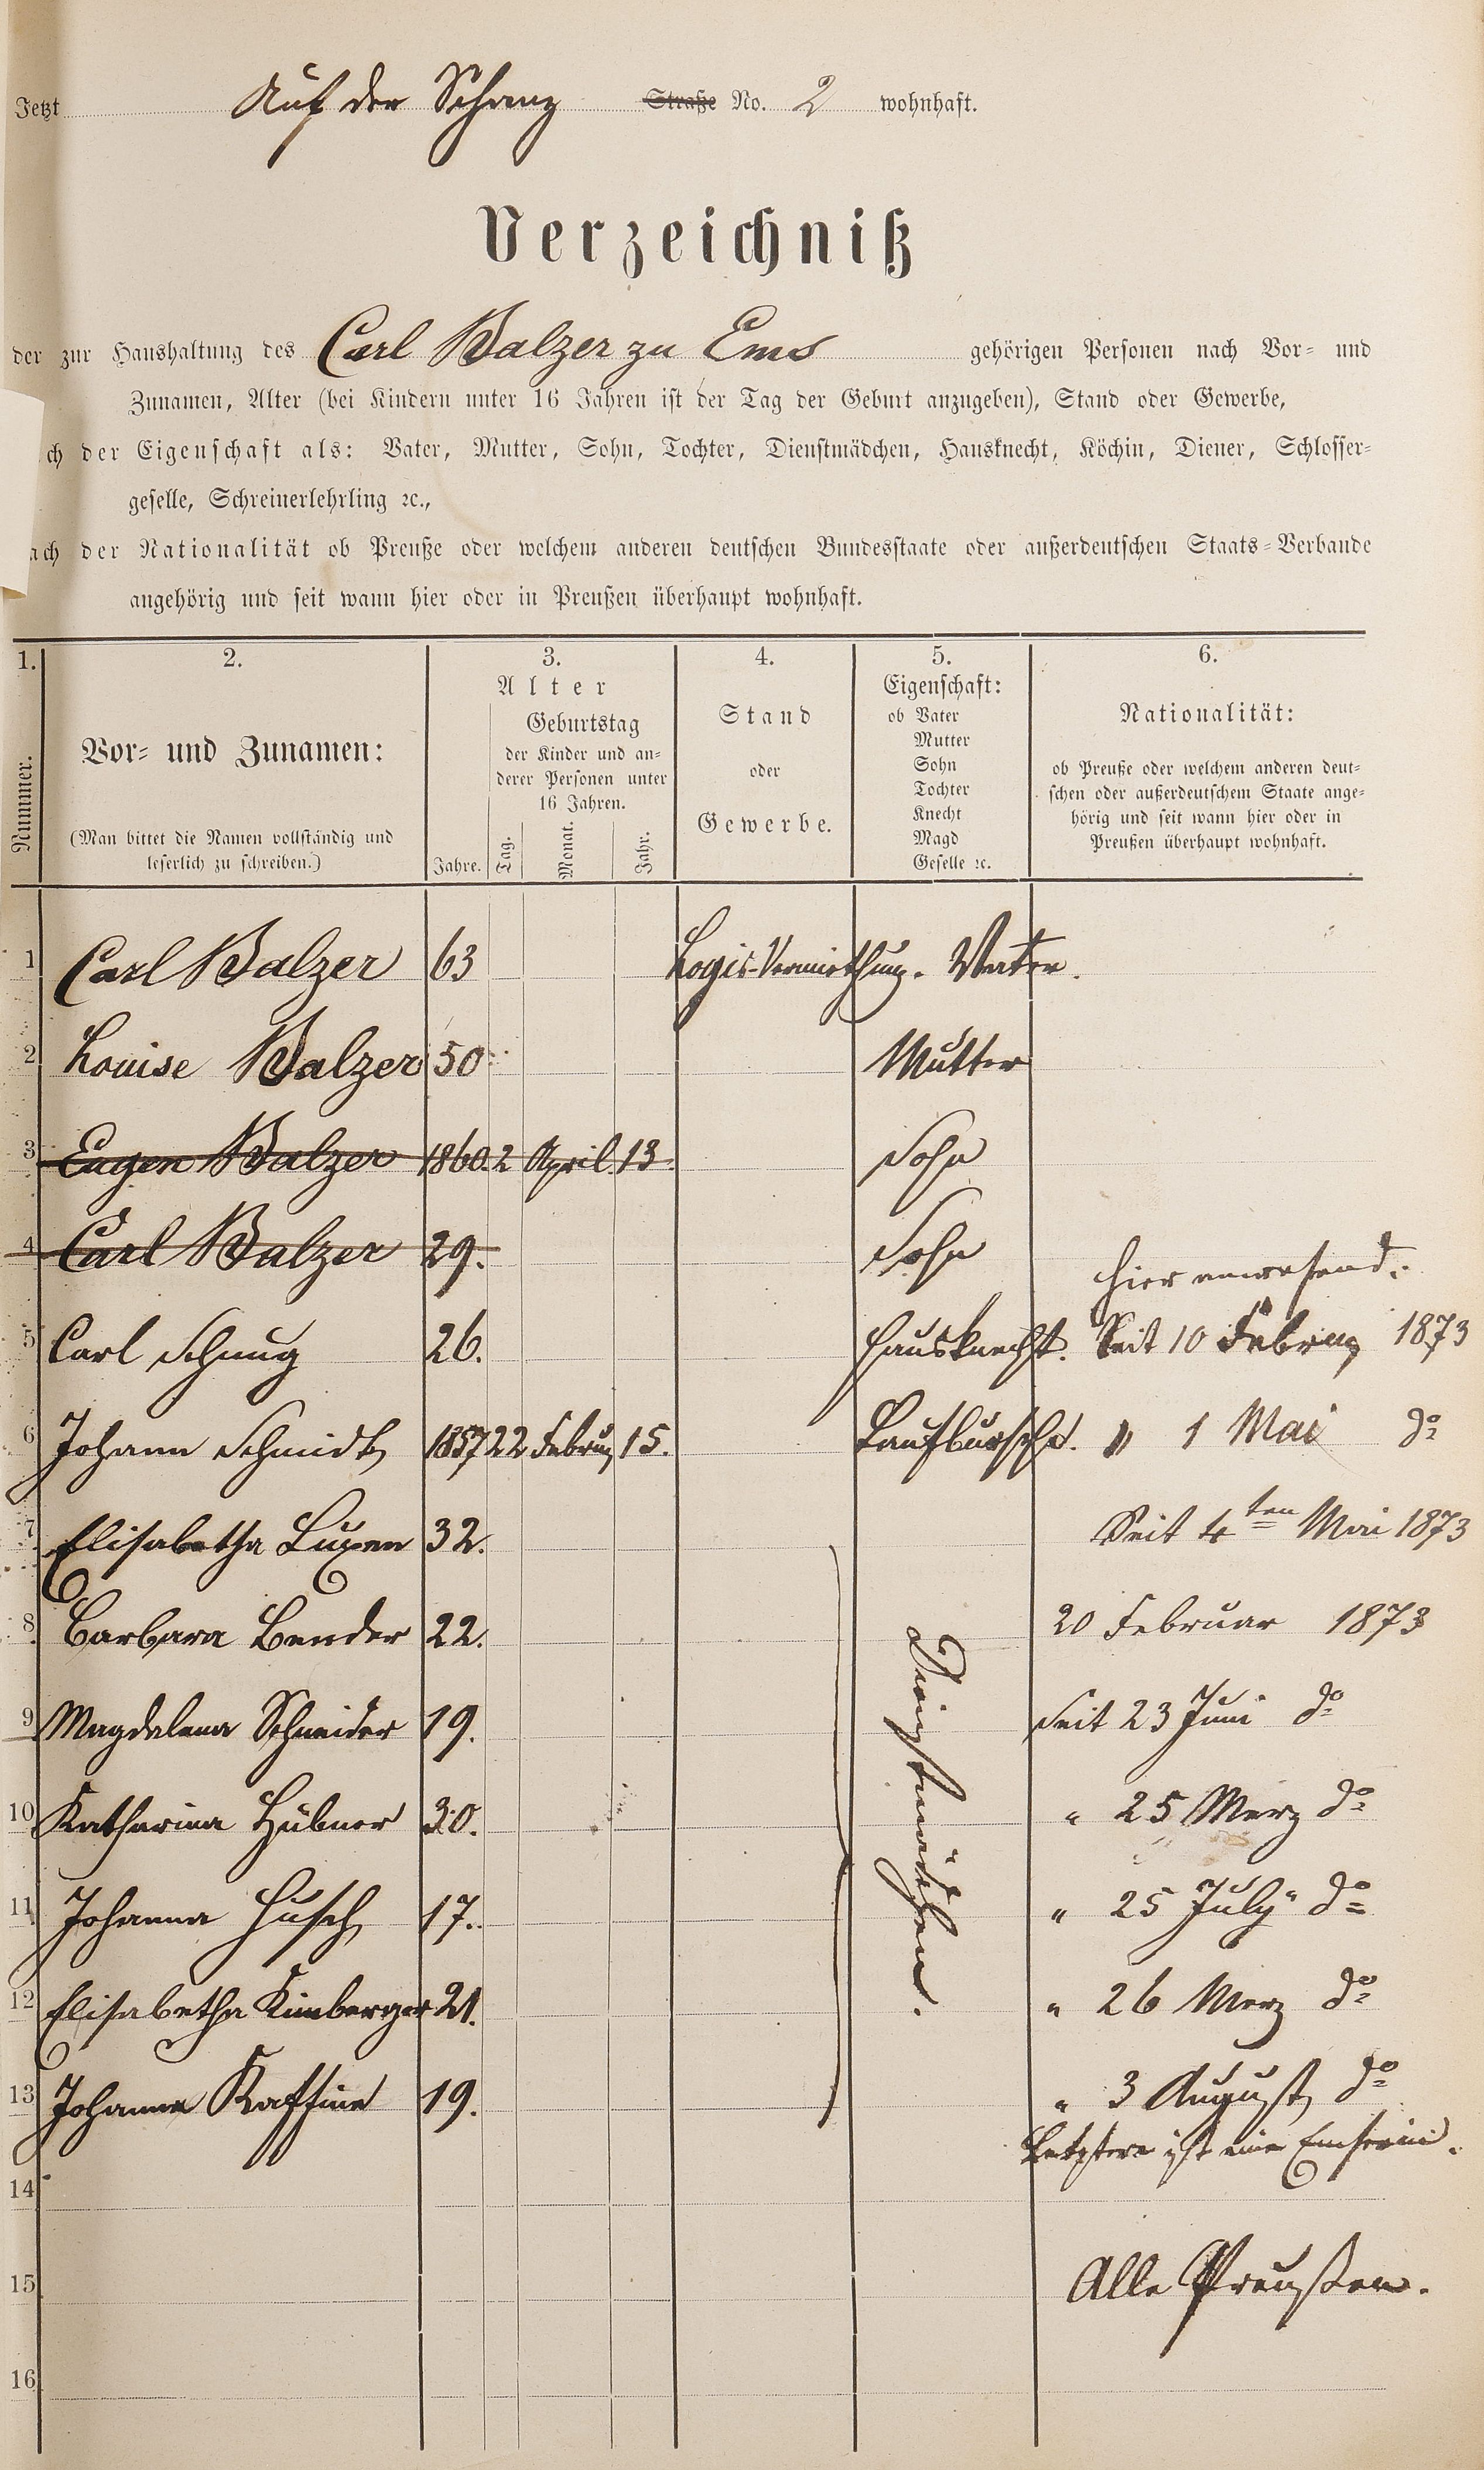 Jetzt Auf der Schanz Straße No. 2 wohnhaft.
Verzeichniß
der zur Haushaltung des Carl Balzer zu Ems gehörigen Personen nach Vor- und
Zunamen, Alter (bei Kindern unter 16 Jahren ist der Tag der Geburt anzugeben), Stand oder Gewerbe,
ch der Eigenschaft als: Vater, Mutter, Sohn, Tochter, Dienstmädchen, Hausknecht, Köchin, Diener, Schlosser-
geselle, Schreinerlehrling ꝛc.,
ach der Nationalität ob Preuße oder welchem anderen deutschen Bundesstaate oder außerdeutschen Staats-Verbande
angehörig und seit wann hier oder in Preußen überhaupt wohnhaft.
1. 2. 3. 4. 5. 6.
Nummer.
Vor- und Zunamen:
(Man bittet die Namen vollständig und
leserlich zu schreiben.)
Alter
Geburtstag
der Kinder und an-
derer Personen unter
16 Jahren.
Jahre. Tag. Monat. Jahr.
Stand
oder
Gewerbe.
Eigenschaft:
ob Vater
Mutter
Sohn
Tochter
Knecht
Magd
Geselle ꝛc.
Nationalität:
ob Preuße oder welchem anderen deut-
schen oder außerdeutschem Staate ange-
hörig und seit wann hier oder in
Preußen überhaupt wohnhaft.
1 Carl Balzer 63 Logis-Vermiethung. Vater.
2 Louise Balzer 50 Mutter
3 Eugen Balzer 1860. 2 April. 13. Sohn
4 Carl Balzer 29. Sohn
hier anwesend:
5 Carl Schnug 26. Hausknecht. Seit 10 Februar 1873
6 Johann Schmidt 1857 22 Februar 15. Laufbursche. " 1 Mai do
7 Elisabetha Luxen 32. Seit 4ten Mai 1873
8 Barbara Bender 22. 20 Februar 1873
9 Magdalena Schneider 19. Seit 23 Juni do
10 Katharina Hübner 30. " 25 Merz do
11 Johanna Husch 17. " 25 July do
12 Elisabetha Kimberger 21. " 26 Merz do
13 Johanna Kaffine 19. " 3 August do
Dienstmädchen.
Letztere ist eine Emserin.
14
15 Alle Preußen.
16